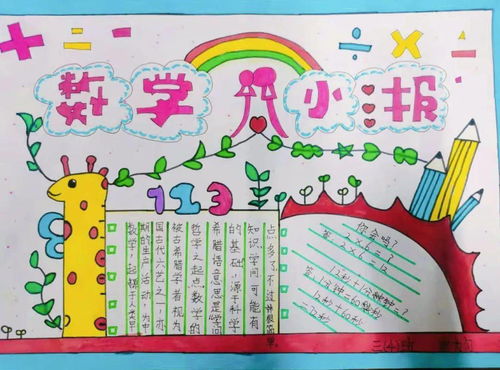 数学小报
123
数学，起源于人类早
期的生产活动，为中
国古代六艺之一，亦
被古希腊学者视为
哲学之起点，数学的
希腊语意思是学问
的基础，源于科学
知识学问可能有
点多了，不过很简单。
你会吗？
2×6=?
答：2×6=12
12秒+1分钟=?
答：1分钟=60秒
12秒+60秒
=72秒